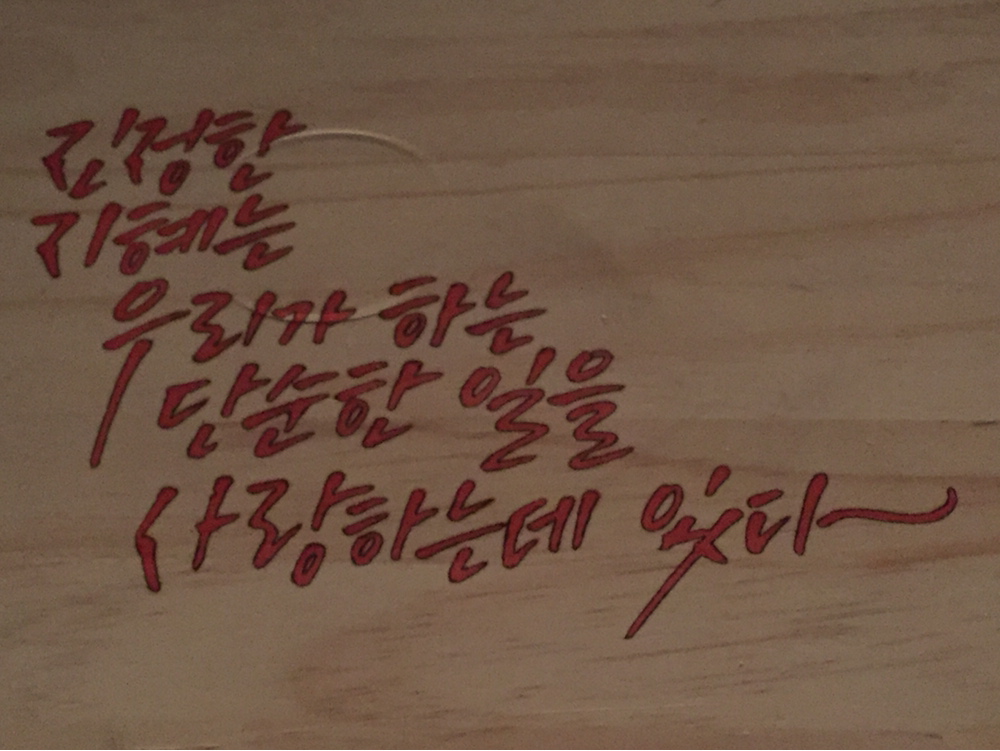 진정한
지혜는
우리가 하는
단순한 일을
사랑하는데 있다